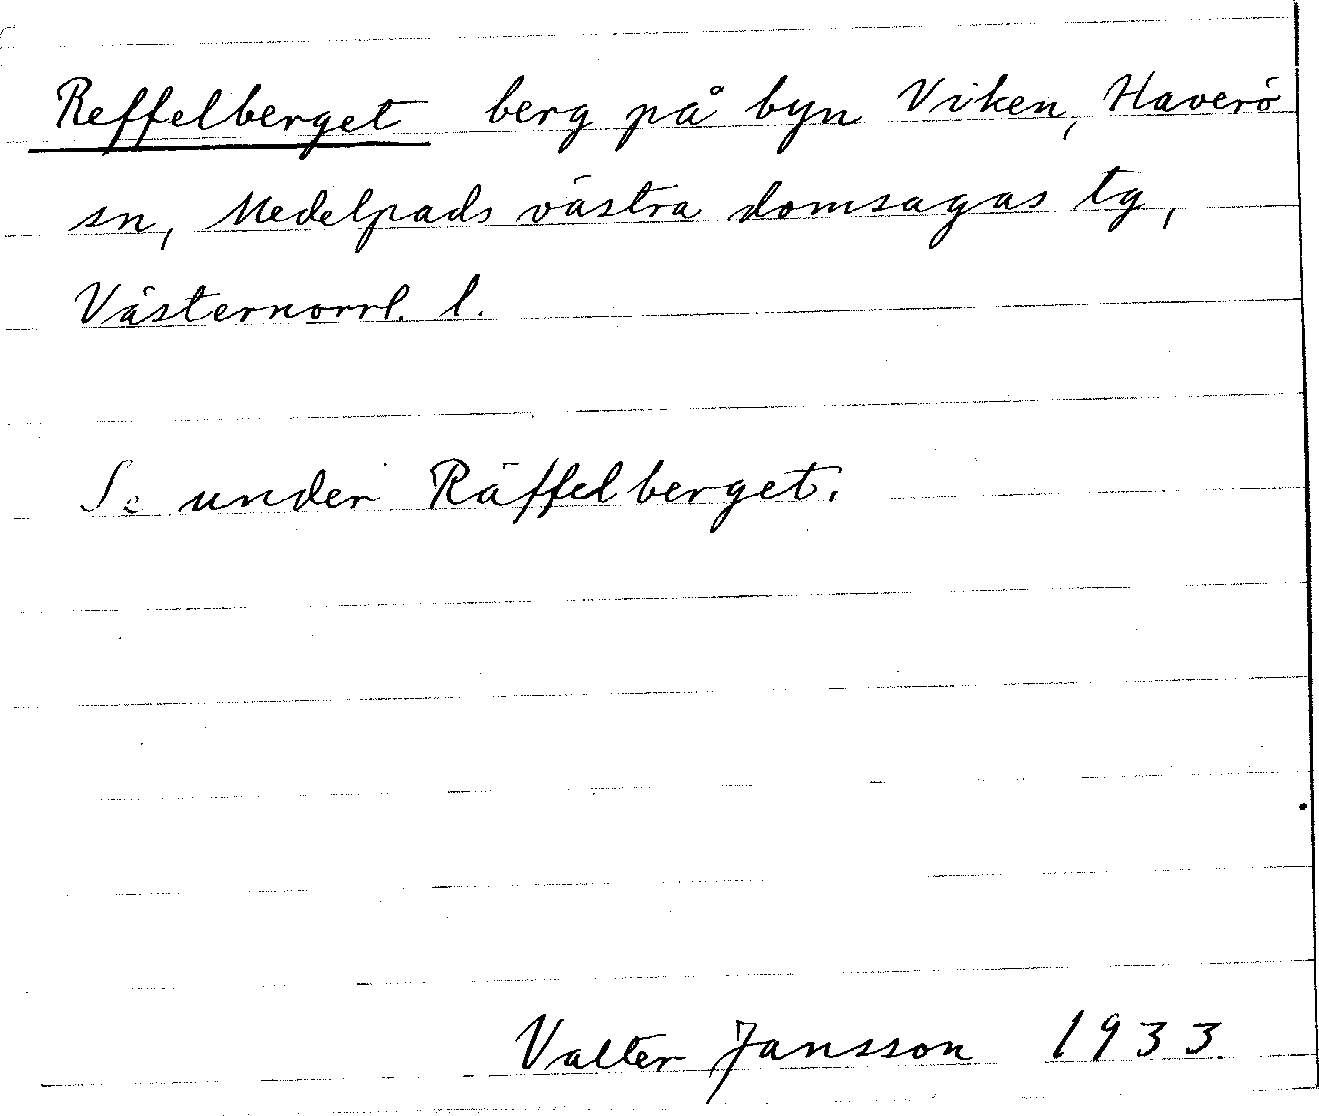 Reffelberget berg på byn Viken, Haverö
sn, Medelpads västra domsagas tg,
Västernorrl. l.
Se under Räffelberget.
Valter Jansson 1933.